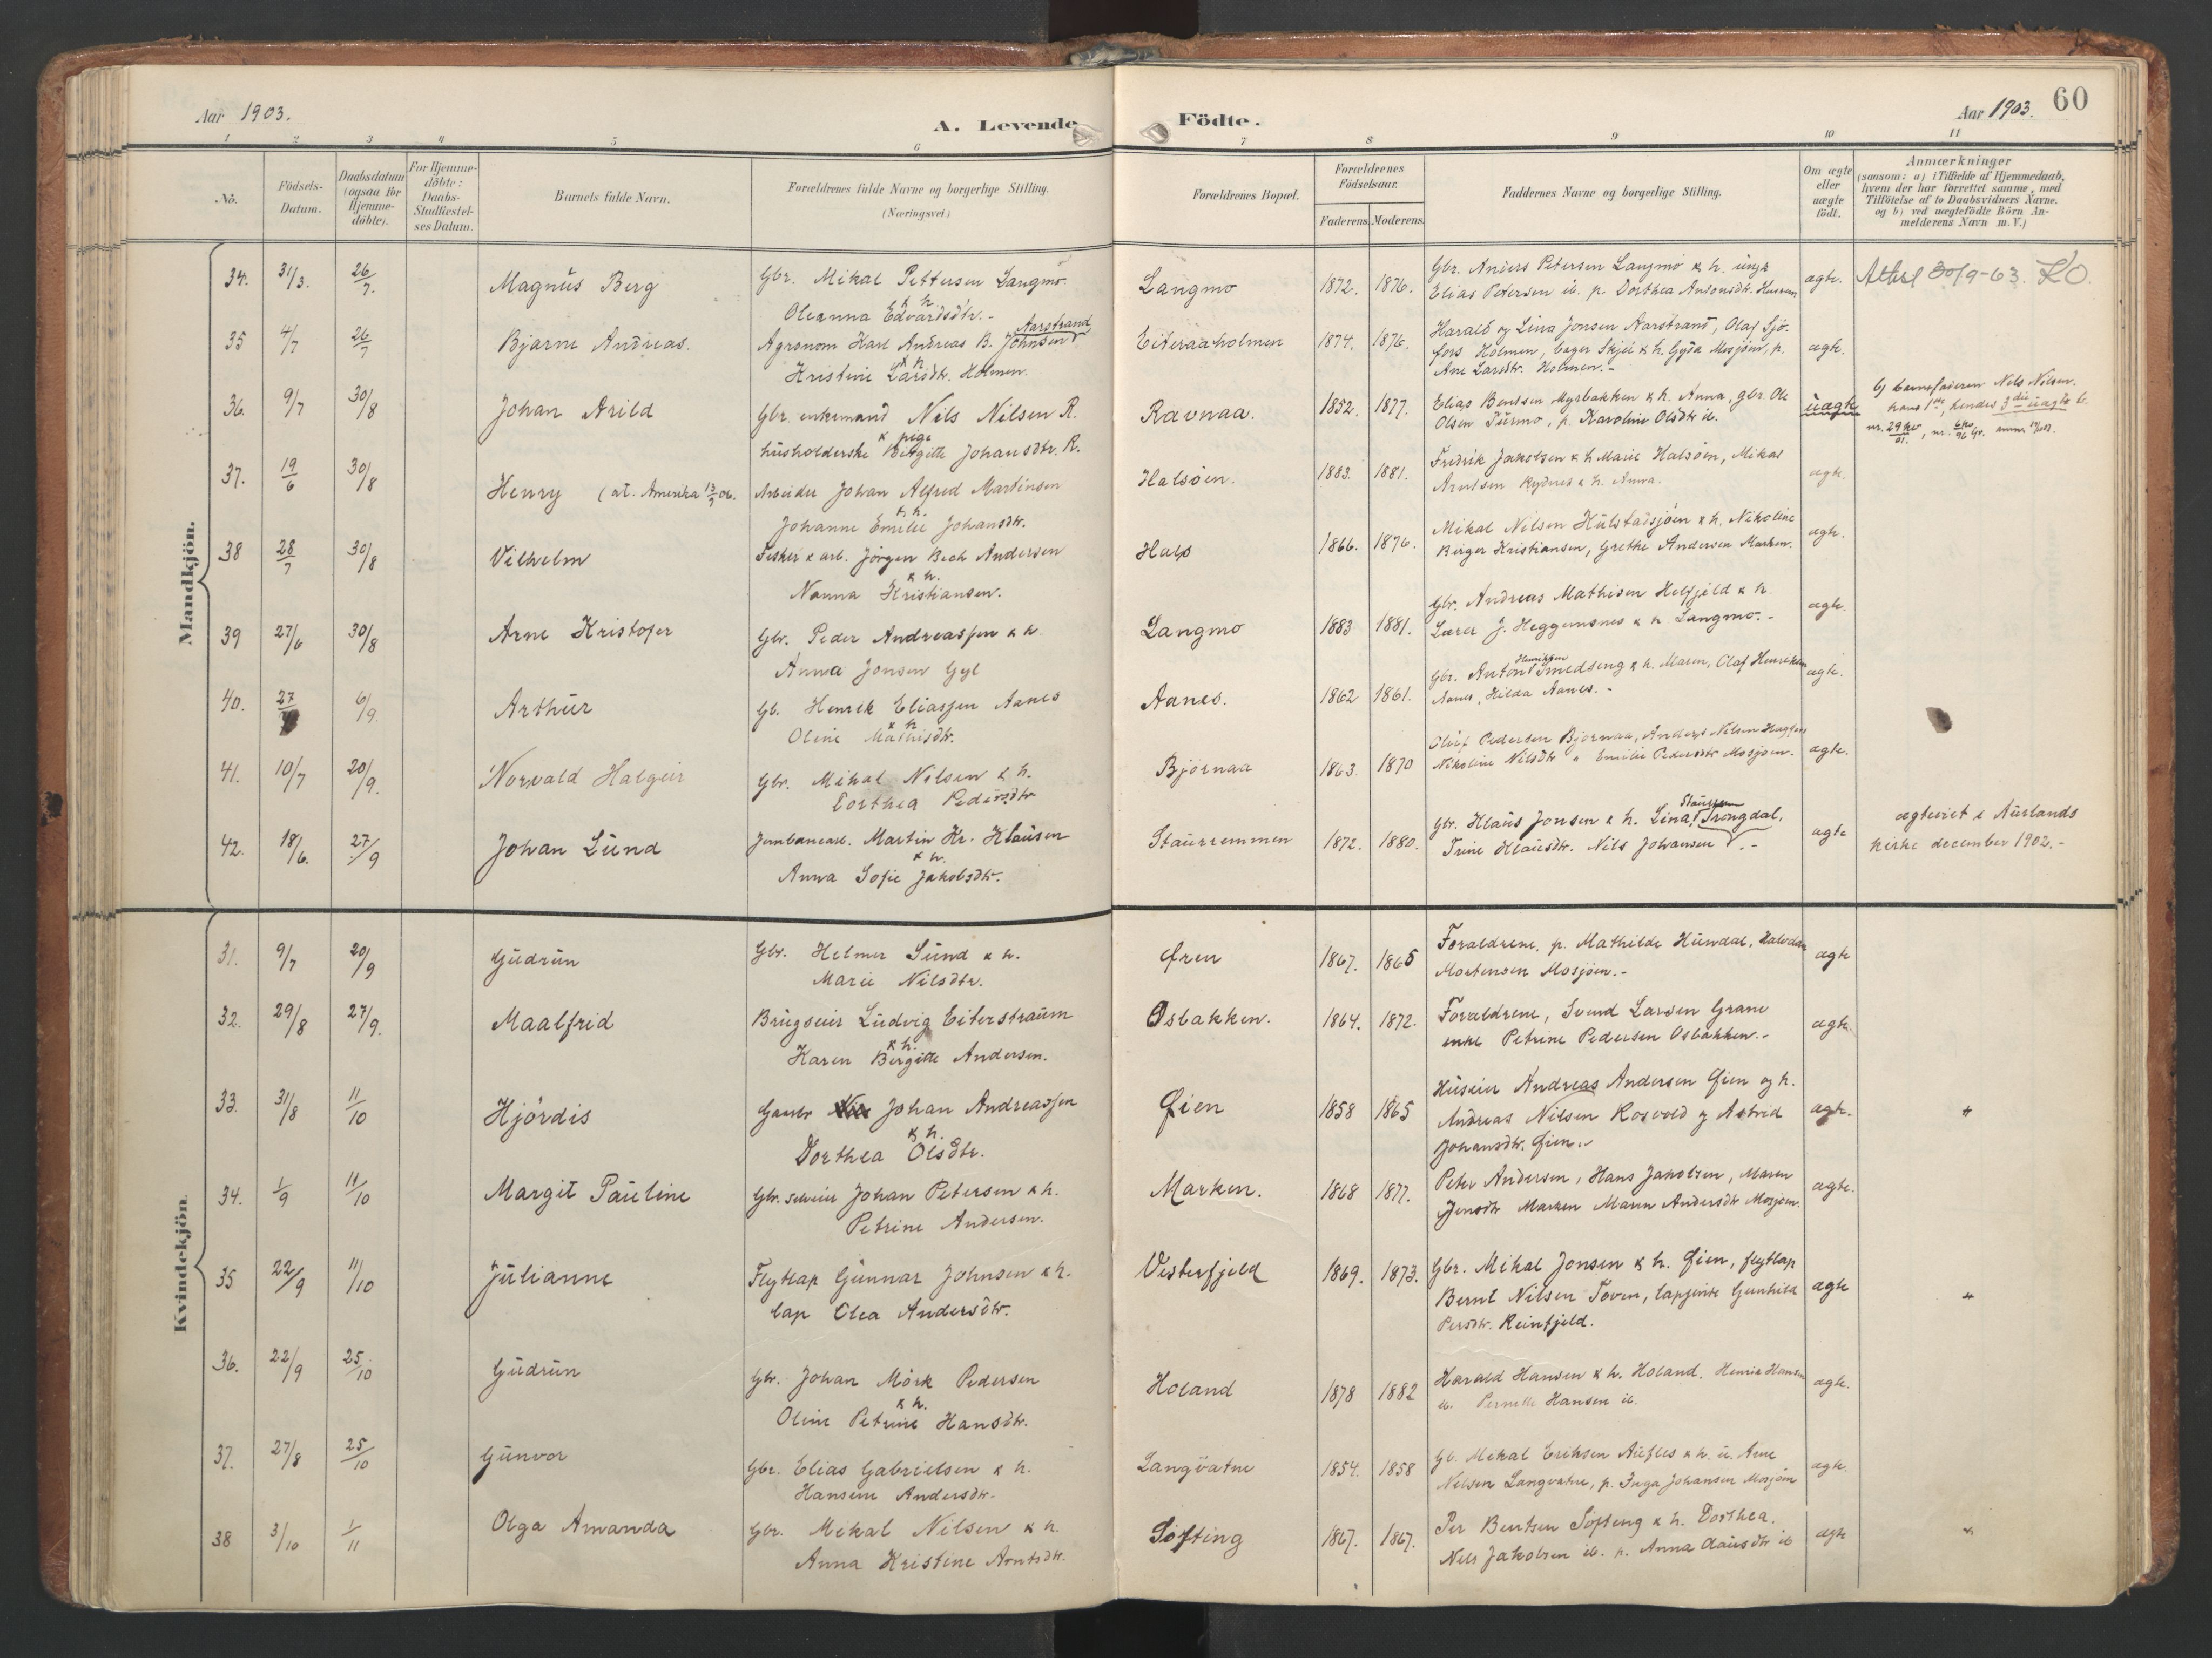 Aar 1903.
A. Levende
Födte.
Aar 1903. 60
1 2 3 4 5 6 7 8 9 10 11
No.
Födsels-
Datum.
Daabsdatum
(ogsaa for
Hjemme-
döbte).
For Hjemme-
döbte:
Daabs-
Stadfæstel-
ses Datum.
Barnets fulde Navn.
Forældrenes fulde Navne og borgerlige Stilling.
(Næringsvei.)
Forældrenes Bopæl.
Forældrenes
Födselsaar.
Faderens. Moderens.
Faddernes Navne og borgerlige Stilling.
Om ægte
eller
uægte
født.
Anmærkninger
(saasom: a) i Tilfælde af Hjemmedaab,
hvem der har forrettet samme, med
Tilföielse af to Daabsvidners Navne.
og b) ved uægtefödte Börn An-
melderens Navn m. V.)
Mandkjön.
34. 31/3. 26/7. Magnus Berg Gbr. Mikal Pettersen Langmo
& h.
Oleanna Edvardsdtr. -
Langmo 1872. 1876. Gbr. Anders Petersen Langmo & h. ungk
Elias Petersen ib. p. Dorthea Antonsdtr.
ægte. 30/9-63. KO.
35 4/7 26/7 Bjarne Andreas. Agronom Karl Andreas B. Johnsen
Aarstrand
& h.
Kristine Larsdtr. Holmen.
Eiteraaholmen 1874. 1876. Harald og Lina Jonsen Aarstrand, Olaf Sjö-
fors Holmen, bager Skjei & h. Gyda Mosjöen, p.
Ane Larsdtr. Holmen. -
ægte.
36. 9/7 30/8 Johan Arild Gbr. enkemand Nils Nilsen R.
& pige
husholderske Birgitte Johansdtr. R.
Ravnaa. 1852. 1877. Elias Bentsen Myrbakken & h. Anna, gbr. Ole
Olsen Turmo, p. Karoline Olsdtr ib.
uægte b) barnefaderen Nils Nilsen.
hans 1ste, hendes 3die uægte b.
37. 19/6 30/8 Henry (at. Amerika 13/9 06. Arbeider Johan Alfred Martinsen
& h.
Johanne Emilie Johansdtr.
Halsöen. 1883. 1881. Fredrik Jakobsen & h Marie Halsöen, Mikal
Arntsen & h. Anna.
ægte.
38 28/7 30/8 Vilhelm Fisker & arb. Jörgen Bech Andersen
& h.
Nanna Kristiansen.
Hals 1866. 1876. Mikal Nilsen Hulstadsjöen & h. Nikoline
Birger Kristiansen, Grethe Andersen Marken.
ægte.
39 27/6 30/8 Arne Kristofer Gbr. Peder Andreassen & h
Anna Jonsen Gyl
Langmo 1883 1881. Gbr. Andreas Mathisen Helfjeld & h
Lærer J. Heggemsnes & h. Langmo. -
ægte.
40. 27/ 6/9. Arthur Gb. Henrik Eliassen Aanes
& h
Oline Mathisdtr.
Aanes. 1862 1861. Gbr. Anton Smedseng & h. Maren, Olaf Henriksen
Henriksen
Aanes, Hilda Aanes. -
ægte.
41. 10/7 20/9. Norvald Halgeir Gbr. Mikal Nilsen & h.
Dorthea Pedersdtr
Bjornaa 1863. 1870 Oluf Pedersen Bjornaa, Anders Nilsen
Nikoline Nilsdtr & Emilie Pedersdtr Mosjöen.
ægte.
42. 18/6. 27/9 Johan Lund Jernbanearb. Martin Kr. Klausen
& h.
Anna Sofie Jakobsdtr.
Staurremmen 1872. 1880. Gbr. Klaus Jonsen & h. Lina, Trongdal,
Trine Klausdtr. Nils Johansen
ægte ægteviet i Aurlands
kirke december 1902. -
Kvindekjön.
31. 9/7 20/9 Gudrun Gbr. Helmer Lund & h.
Marie Nilsdtr.
Øren 1867. 1865 Forældrene, p. Mathilde Hundal, Halvdan
Mortensen Mosjöen. -
ægte
32. 29/8 27/9. Maalfrid Brugseier Ludvig Eiterstraum
& h.
Karen Bergitte Andersen.
Osbakken. 1864. 1872. Forældrene, Svend Larsen Grane
enke Petrine Pedersen Osbakken. -
ægte.
33. 31/8 11/10 Hjördis Johan Andreassen
& h.
Dorthea Olsdtr.
Øien 1858 1865 Huseier Andreas Andersen Øien og h.
Andreas Nilsen Rosvold og Astrid
Johansdtr. Øien. -
ægte.
34. 1/9 11/10 Margit Pauline Gbr. selveier Johan Petersen & h.
Petrine Andersen.
Marken. 1868 1877. Peter Andersen, Hans Jakobsen, Maren
Jensdtr Marken Maren Andersdtr Mosjöen.
ægte.
35 22/9 11/10 Julianne Flytlap Gunnar Johnsen & h.
lap Olea Andersdtr.
Vesterfjeld 1869. 1873. Gbr. Mikal Jonsen & h. Øien, flytlap
Bernt Nilsen Toven, lapjente Gunhild
Persdtr. Reinfjeld.
ægte "
36. 22/9 25/10 Gudrun Gbr. Johan Mörk Pedersen
& h.
Oline Petrine Hansdtr.
Holand 1878 1882 Harald Hansen & h. Holand. Henrik Hansen
ib. Pernelle Hansen ib.
ægte.
37. 27/8 25/10 Gunvor Gbr. Elias Gabrielsen & h.
Hansine Andersdtr.
Langvatne 1854. 1858 Gb. Mikal Eriksen Aufles & h. u. Arne
Nilsen Langvatne, p. Inga Johansen Mosjöen
ægte.
38 3/10 1/11 Olga Amanda Gbr. Mikal Nilsen & h.
Anna Kristine Arntsdtr.
Söfting 1867. 1867. Per Bentsen Söfting & h. Dorthea.
Nils Jakobsen ib. p. Anna Clausdtr ib
ægte "